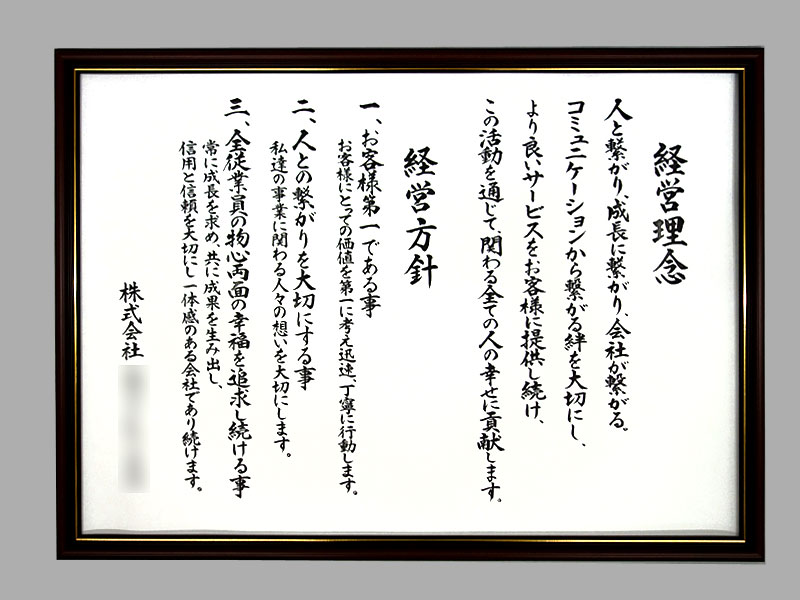 経営理念
人と繋がり、成長に繋がり、会社が繋がる。
コミュニケーションから繋がる絆を大切にし、
より良いサービスをお客様に提供し続け、
この活動を通じて、関わる全ての人の幸せに貢献します。
経営方針
一、お客様第一である事
お客様にとっての価値を第一に考え迅速、丁寧に行動します。
二、人との繋がりを大切にする事
私達の事業に関わる人々の想いを大切にします。
三、全従業員の物心両面の幸福を追求し続ける事
常に成長を求め、共に成果を生み出し、
信用と信頼を大切にし一体感のある会社であり続けます。
株式会社